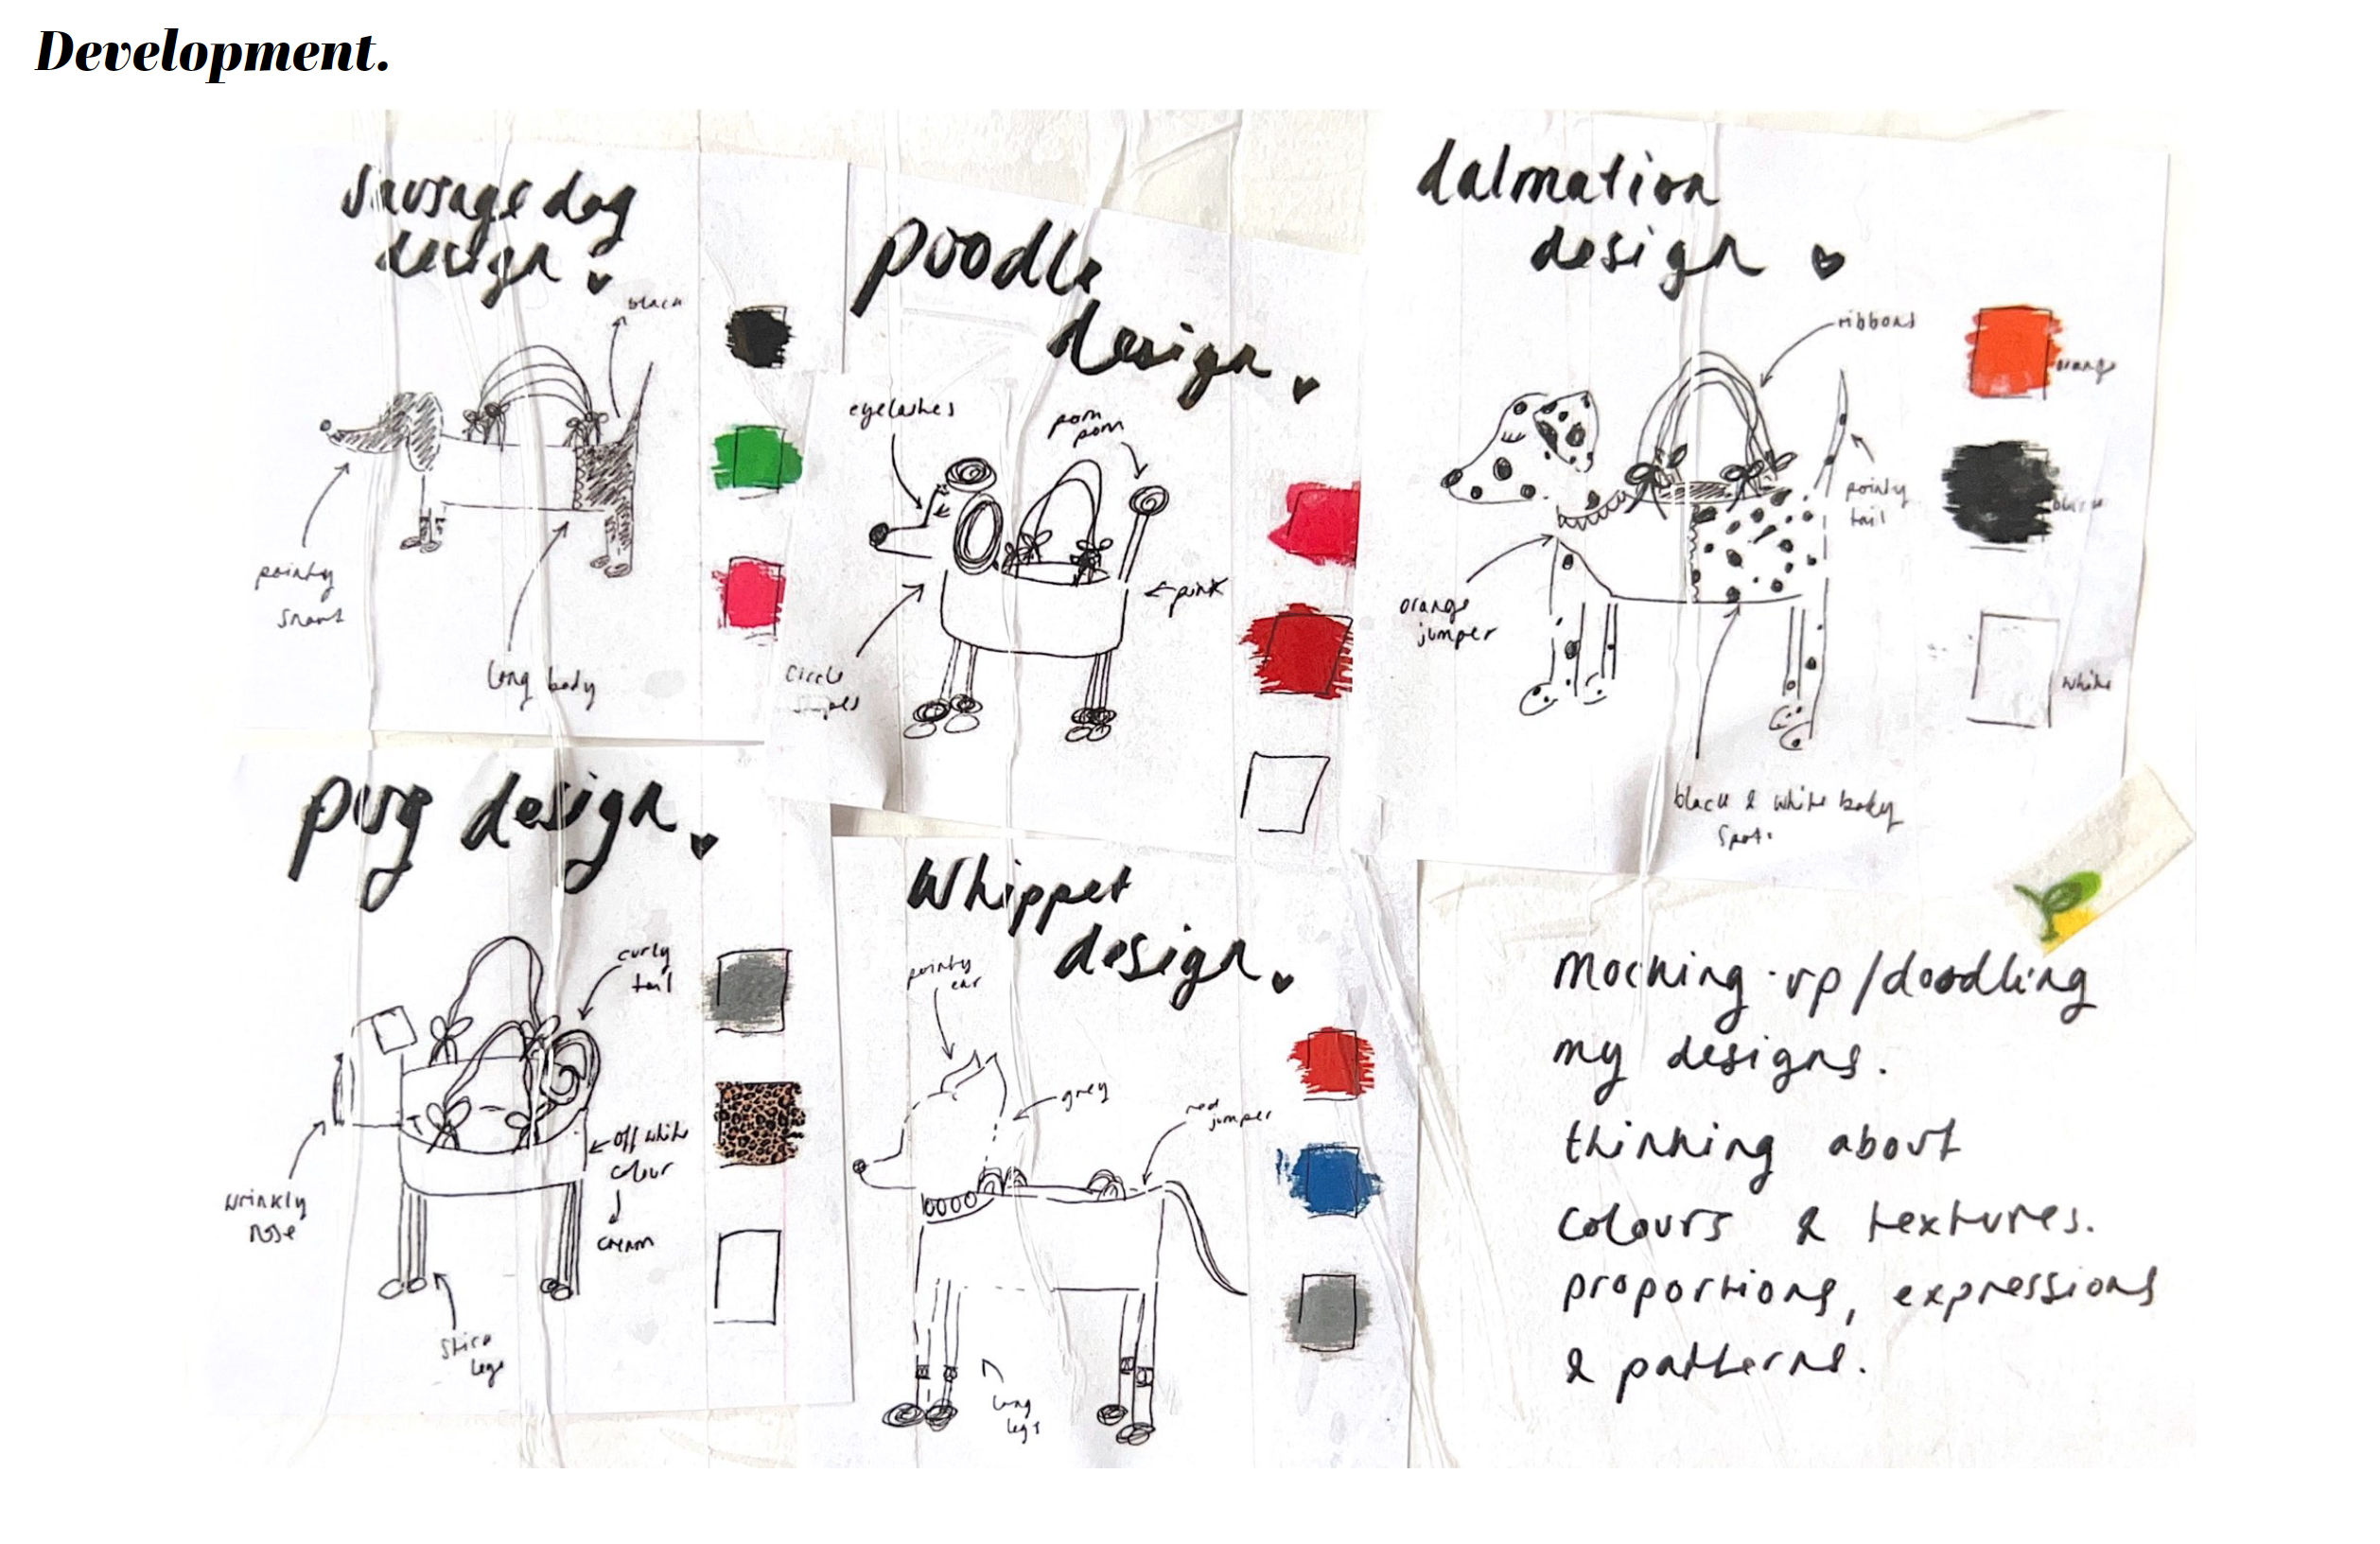 Development.
sausage dog
design
black
pointy
snout
long body
poodle
design
eyelashes
pom
pom
pink
circle
dalmation
design
ribbons
orange
pointy
tail
black
orange
jumper
white
black & white body
spots
pug design
curly
tail
off white
colour
cream
wrinkly
nose
stick
legs
Whippet
design
pointy
ear
grey
red
jumper
long
legs
mocking-up/doodling
my designs.
thinking about
colours & textures.
proportions, expressions
& patterns.